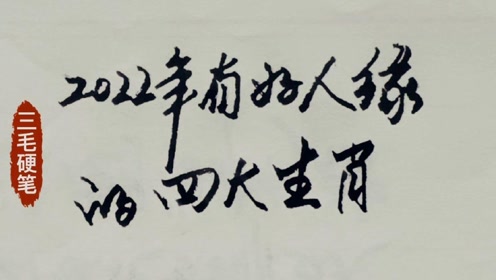 2022年有好人缘
的四大生肖
三毛硬笔